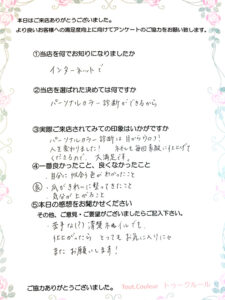 本日はご来店ありがとうございました。
より良いお客様への満足度向上に向けてアンケートのご協力をお願い致します。
①当店を何でお知りになりましたか
インターネットで
②当店を選ばれた決めては何ですか
パーソナルカラー診断ができるから
③実際ご来店されてみての印象はいかがですか
パーソナルカラー診断は目からウロコ!
人生変わりました! ネイルも毎回素敵に仕上げて
くださるので、大満足です。
④一番良かったこと、良くなかったこと
・自分に似合う色がわかったこと
・爪がきれいに整ってきたこと
気分が上がること
⑤本日の感想をお聞かせください
その他、ご意見・ご要望がございましたらご記入下さい。
苦手な(?)清楚ネイルでも、
仕上がったら とってもお気に入りに♡
また お願いします!
ご協力ありがとうございました。
Tout.Couleur トゥークルール